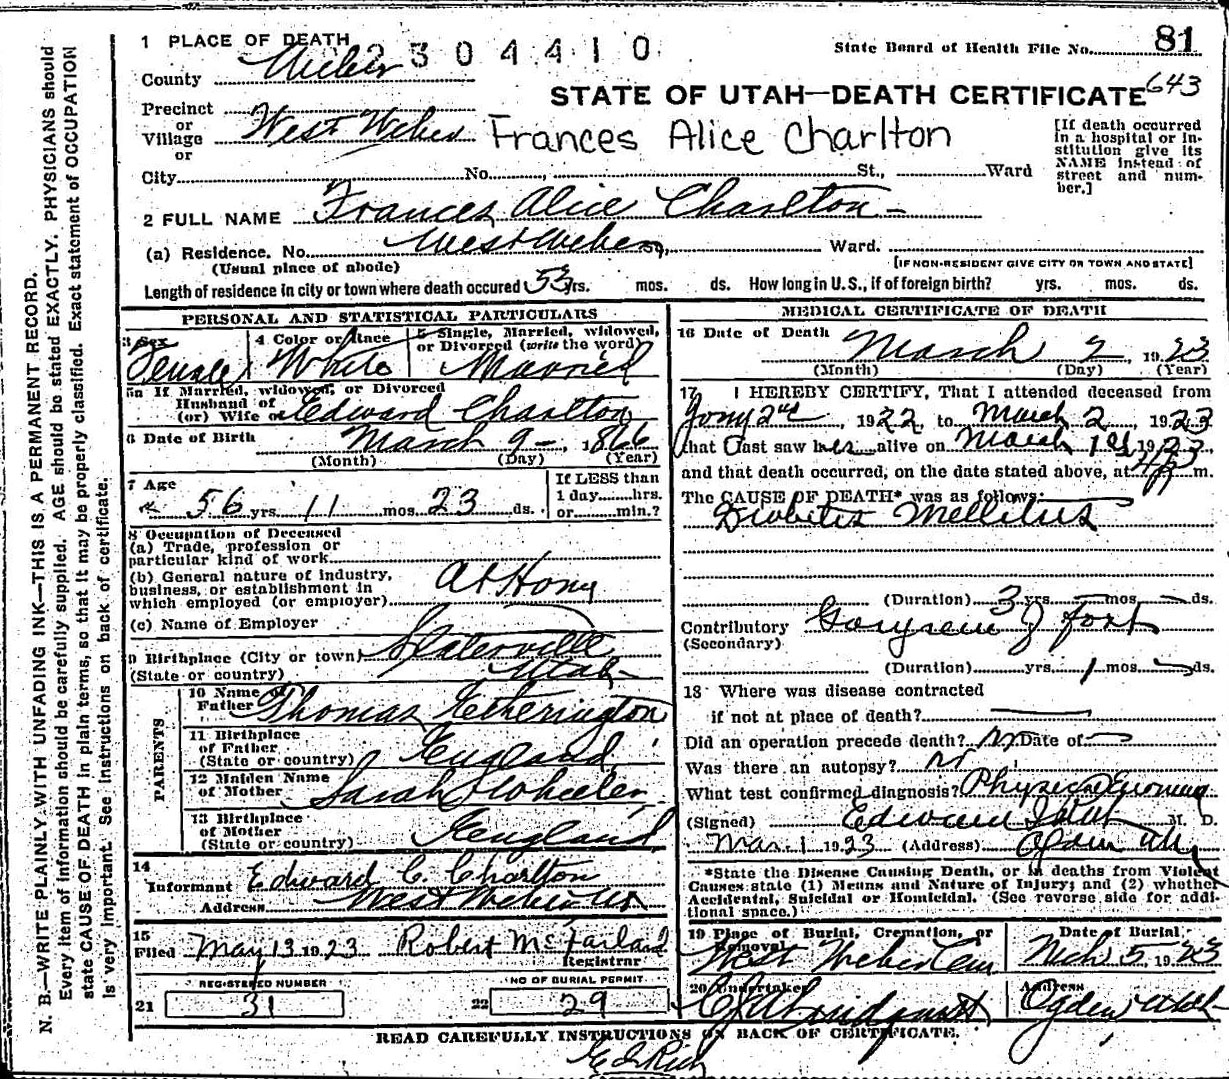 1 PLACE OF DEATH
2304410
State Board of Health File No. 81
643
County Weber
STATE OF UTAH—DEATH CERTIFICATE
Precinct
or
Village West Weber
or
Frances Alice Charlton
[If death occurred
in a hospital or in-
stitution give its
NAME instead of
street and num-
ber.]
City No. , St., Ward
2 FULL NAME Frances Alice Charlton
(a) Residence. No. West Weber St., Ward.
(Usual place of abode)
[IF NON-RESIDENT GIVE CITY OR TOWN AND STATE]
Length of residence in city or town where death occured 53 yrs. mos. ds. How long in U.S., if of foreign birth? yrs. mos. ds.
PERSONAL AND STATISTICAL PARTICULARS
3 Sex
Female
4 Color or Race
White
5 Single, Married, widowed,
or Divorced (write the word)
Married
5a If Married, widowed, or Divorced
Husband of
(or) Wife of Edward Charlton
6 Date of Birth March 9 - 1866
(Month) (Day) (Year)
7 Age
56 yrs. 11 mos. 23 ds.
If LESS than
1 day hrs.
or min.?
8 Occupation of Deceased
(a) Trade, profession or
particular kind of work
(b) General nature of industry,
business, or establishment in
which employed (or employer)
At Home
(c) Name of Employer
9 Birthplace (City or town) Slaterville
(State or country) Utah
PARENTS
10 Name of
Father Thomas Etherington
11 Birthplace
of Father
(State or country) England
12 Maiden Name
of Mother Sarah Wheeler
13 Birthplace
of Mother
(State or country) England
14
Informant Edward C. Charlton
Address West Weber Ut
15
Filed May 13 1923 Robert McFarland
Registrar
REGISTERED NUMBER
21 31
NO OF BURIAL PERMIT
22 29
MEDICAL CERTIFICATE OF DEATH
16 Date of Death March 2, 1923
(Month) (Day) (Year)
17 I HEREBY CERTIFY, That I attended deceased from
2nd, 1922 to March 2, 1923
that I last saw her alive on March 1st 1923
and that death occurred, on the date stated above, at m.
The CAUSE OF DEATH* was as follows:
Diabetis Mellitus
(Duration) 3 yrs. mos. ds.
Contributory
(Secondary)
foot
(Duration) yrs. 1 mos. ds.
18 Where was disease contracted
if not at place of death?
Did an operation precede death? No Date of
Was there an autopsy? No
What test confirmed diagnosis? Physical
(Signed) Edward M. D.
Mar. 1 1923 (Address) Ogden Utah
*State the Disease Causing Death, or in deaths from Violent
Causes state (1) Means and Nature of Injury; and (2) whether
Accidental, Suicidal or Homicidal. (See reverse side for addi-
tional space.)
19 Place of Burial, Cremation, or
Removal
West Weber Cem
Date of Burial
Mch 5, 1923
20 Undertaker
Address
Ogden Utah
READ CAREFULLY INSTRUCTIONS ON BACK OF CERTIFICATE.
E I Rich
N. B.—WRITE PLAINLY WITH UNFADING INK—THIS IS A PERMANENT RECORD.
Every item of information should be carefully supplied. AGE should be stated EXACTLY. PHYSICIANS should
state CAUSE OF DEATH in plain terms, so that it may be properly classified. Exact statement of OCCUPATION
is very important. See instructions on back of certificate.